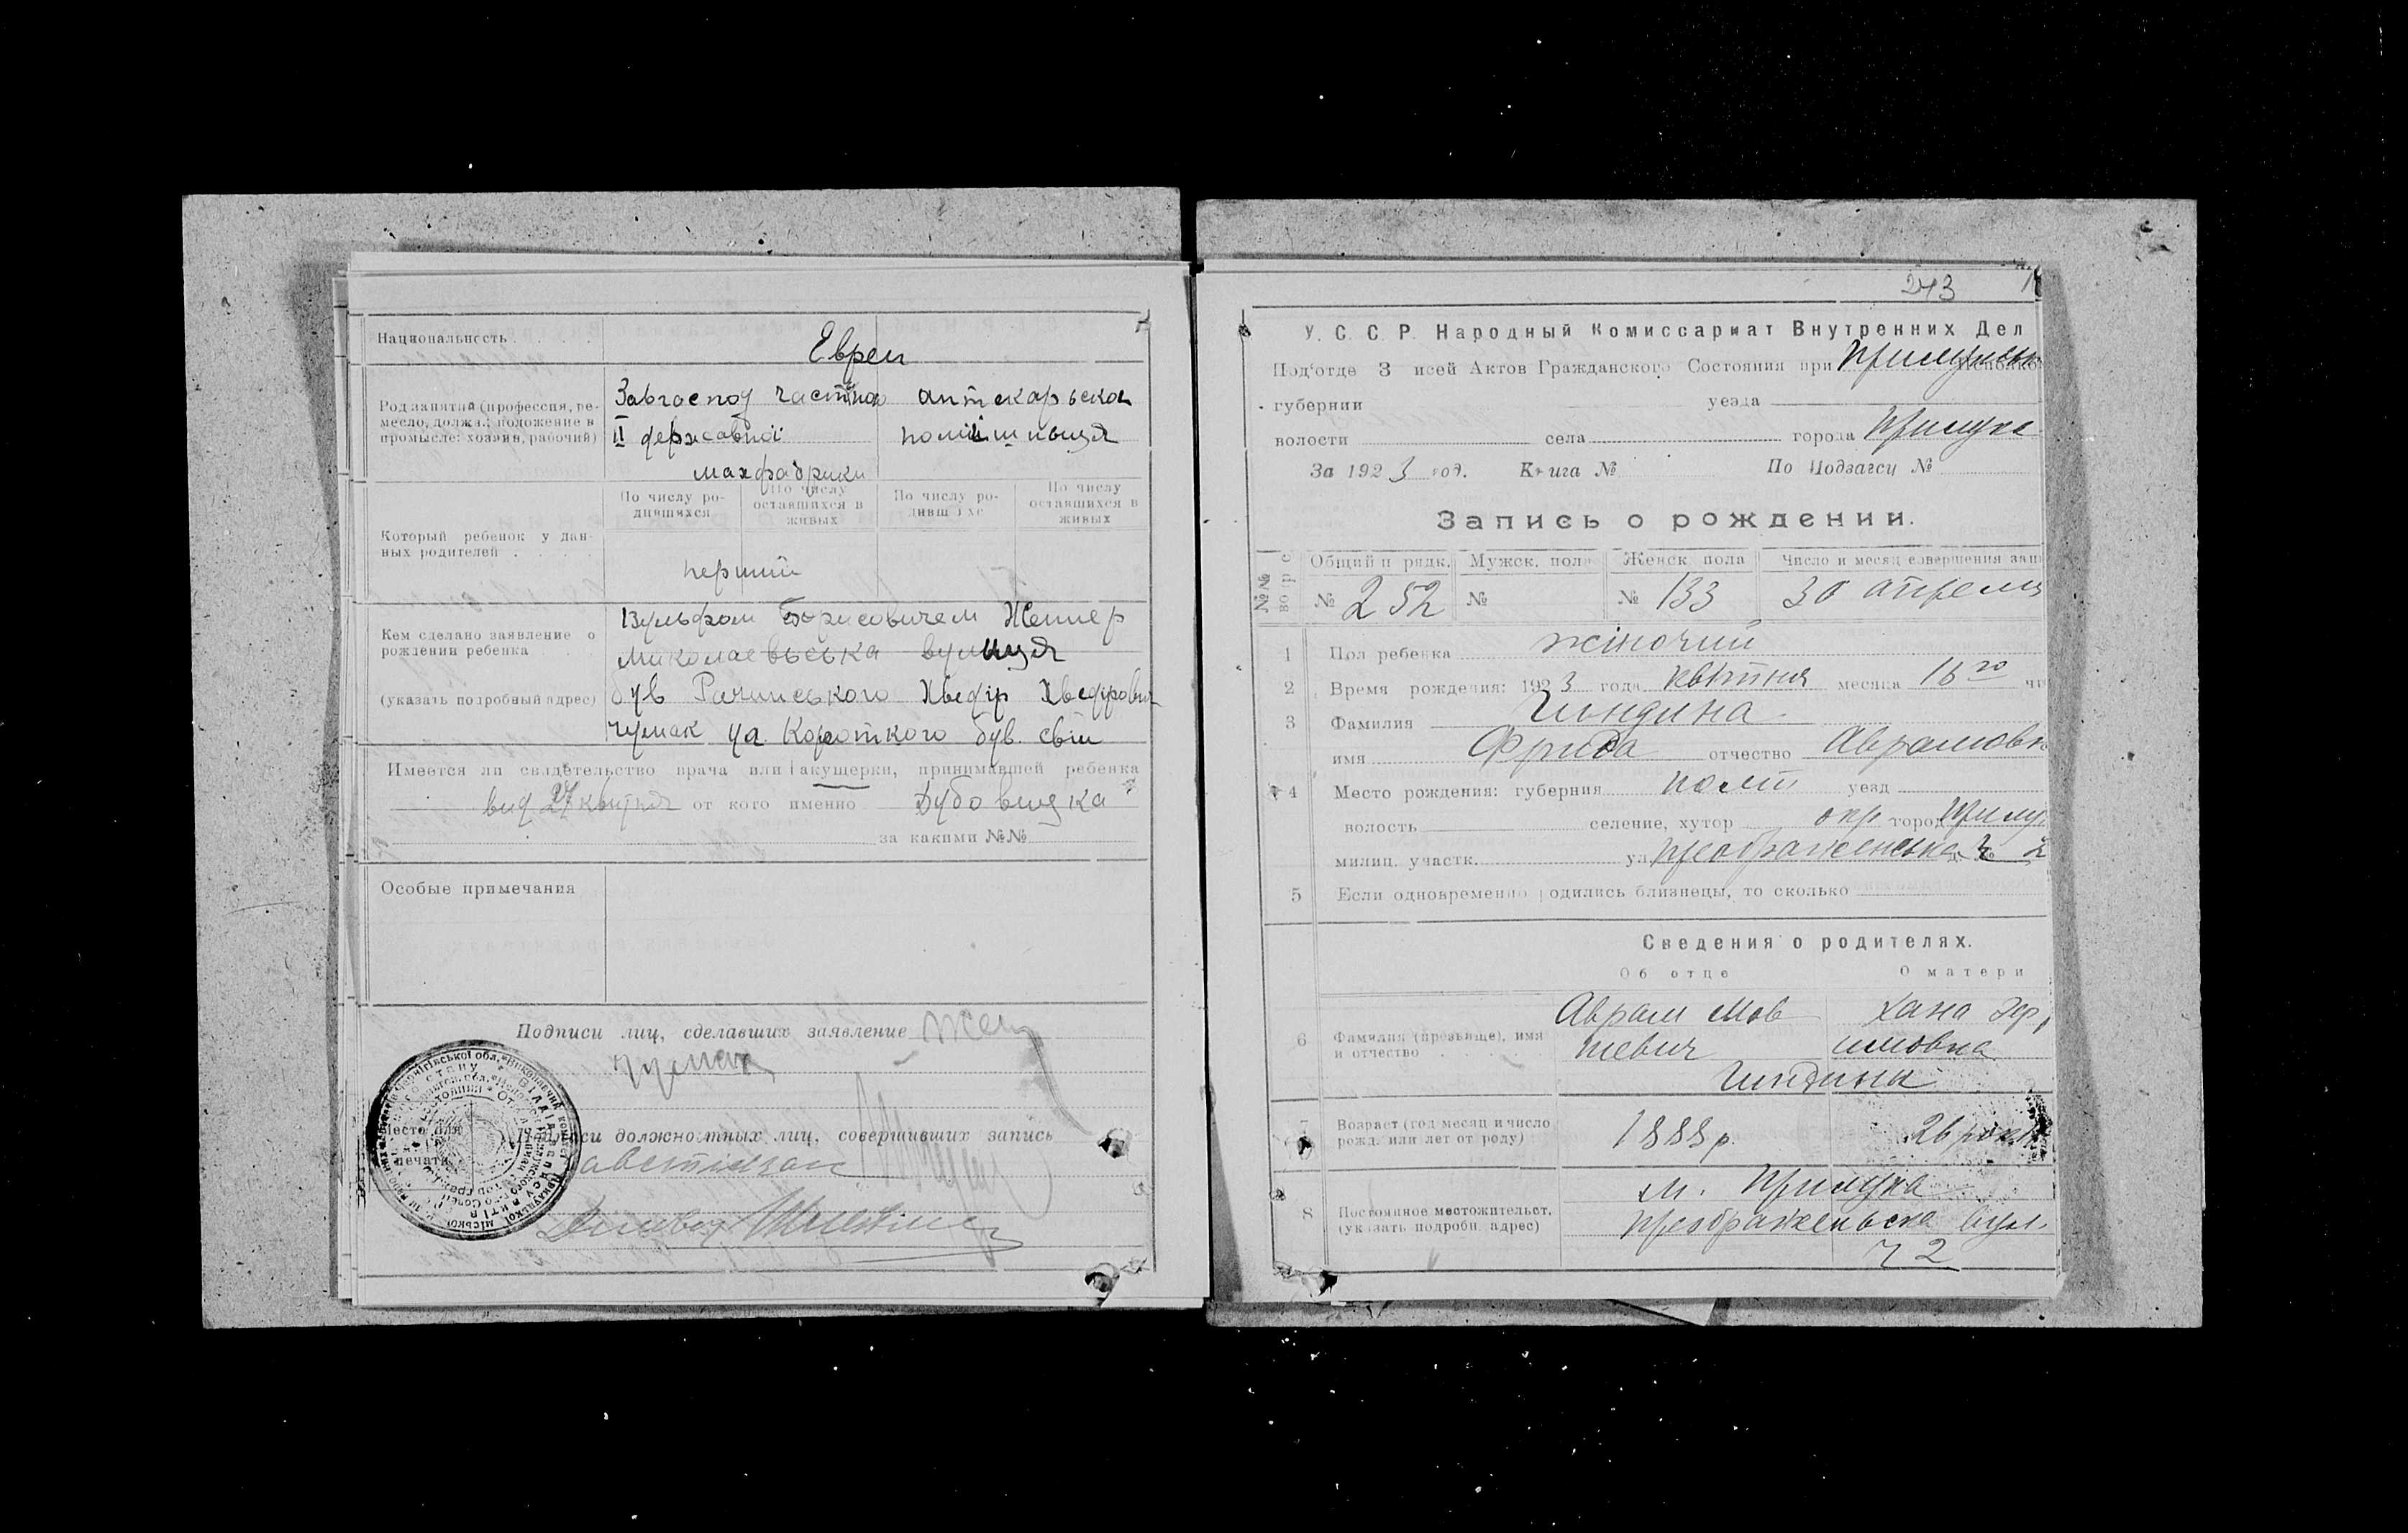 Национальность
Евреи
Род занятий (профессия, ре-
месло, должн.; положение в
промысле: хозяин, рабочий)
Завгоспод частною
II державної
махфабрики
аптекарьская
помішниця
Который ребенок у дан-
ных родителей
По числу ро-
дившихся
По числу
оставшихся в
живых
По числу ро-
дивш хс
По числу
оставшихся в
живых
перший
Кем сделано заявление о
рождении ребенка
(указать подробный адрес)
Вульфом Борисовичем Женнер
Миколаевьська вулиця
буд Рачинського Хведір Хведірович
Чумак Короткого буд. свій
Имеется ли свидетельство врача или акушерки, принимавшей ребенка
вид 27 квитня от кого именно Дубовицка
за какими №№
Особые примечания
Подписи лиц, сделавших заявление
Чумак
Место для
печати
Подписи должностных лиц, совершивших запись
243
У. С. С. Р. Народный Комиссариат Внутренних Дел
Под'отде З исей Актов Гражданского Состояния при Прилуцьк
губернии уезда
волости села города Прилуки
За 1923 год. Книга № По Подзагсу №
Запись о рождении.
№№ вопрос
Общий п рядк. Мужск. пола Женск пола Число и месяц совершения запи
№ 252 № № 133 30 апреля
1 Пол ребенка жіночий
2 Время рождения: 1923 года квітня месяца 16го
3 Фамилия Гиндина
имя Фрида отчество Аврамовн
4 Место рождения: губерния полт уезд
волость селение, хутор окр город Прилу
милиц. участк. ул Преображенська ч 2
5 Если одновременно родились близнецы, то сколько
Сведения о родителях.
Об отце О матери
6 Фамилия (прозвище), имя
и отчество
Аврам Мов
шевич
Хана Эфр
имовна
Гиндины
7 Возраст (год месяц и число
рожд. или лет от роду)
1888 р. 26 років
8 Постоянное местожительст.
(указать подробн. адрес)
м. Прилука
Преображеньска вул
ч 2